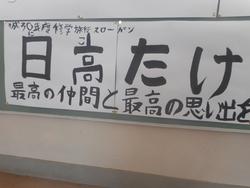 年度修学旅行スローガン
日高たけ
最高の仲間と最高の思い出を